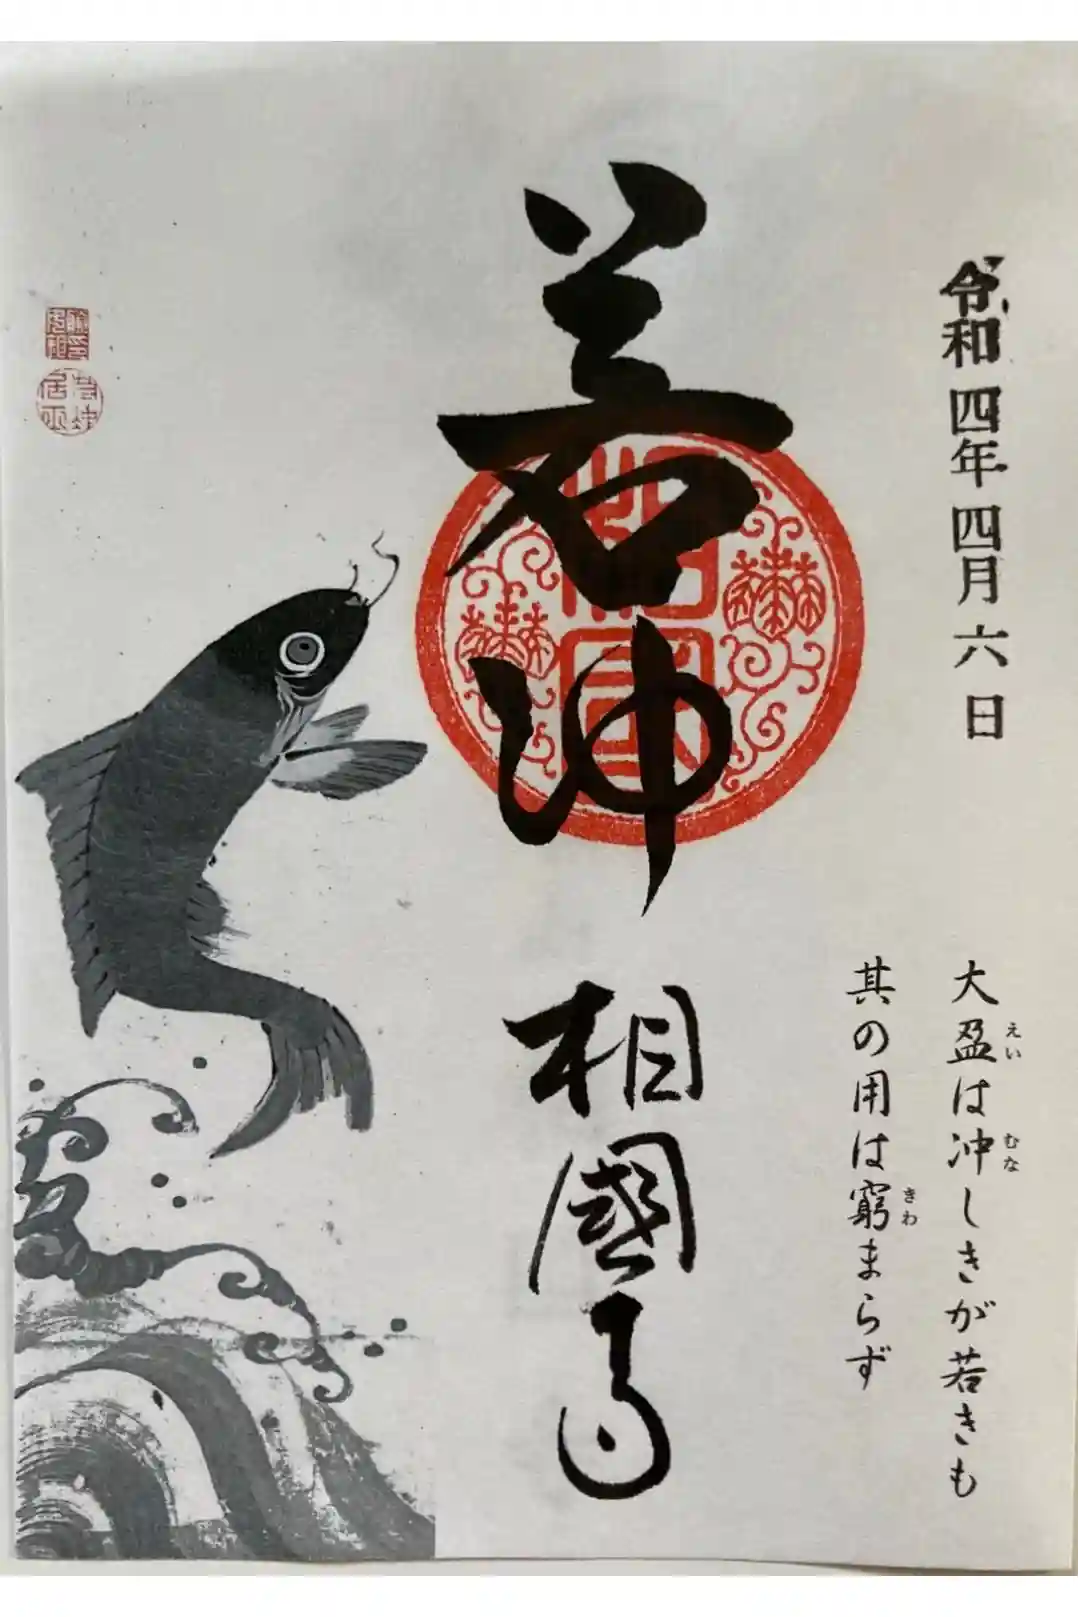 令和四年四月六日
大盈は冲しきが若きも
えい
むな
其の用は窮まらず
きわ
若冲
相國寺
相國
若冲居士